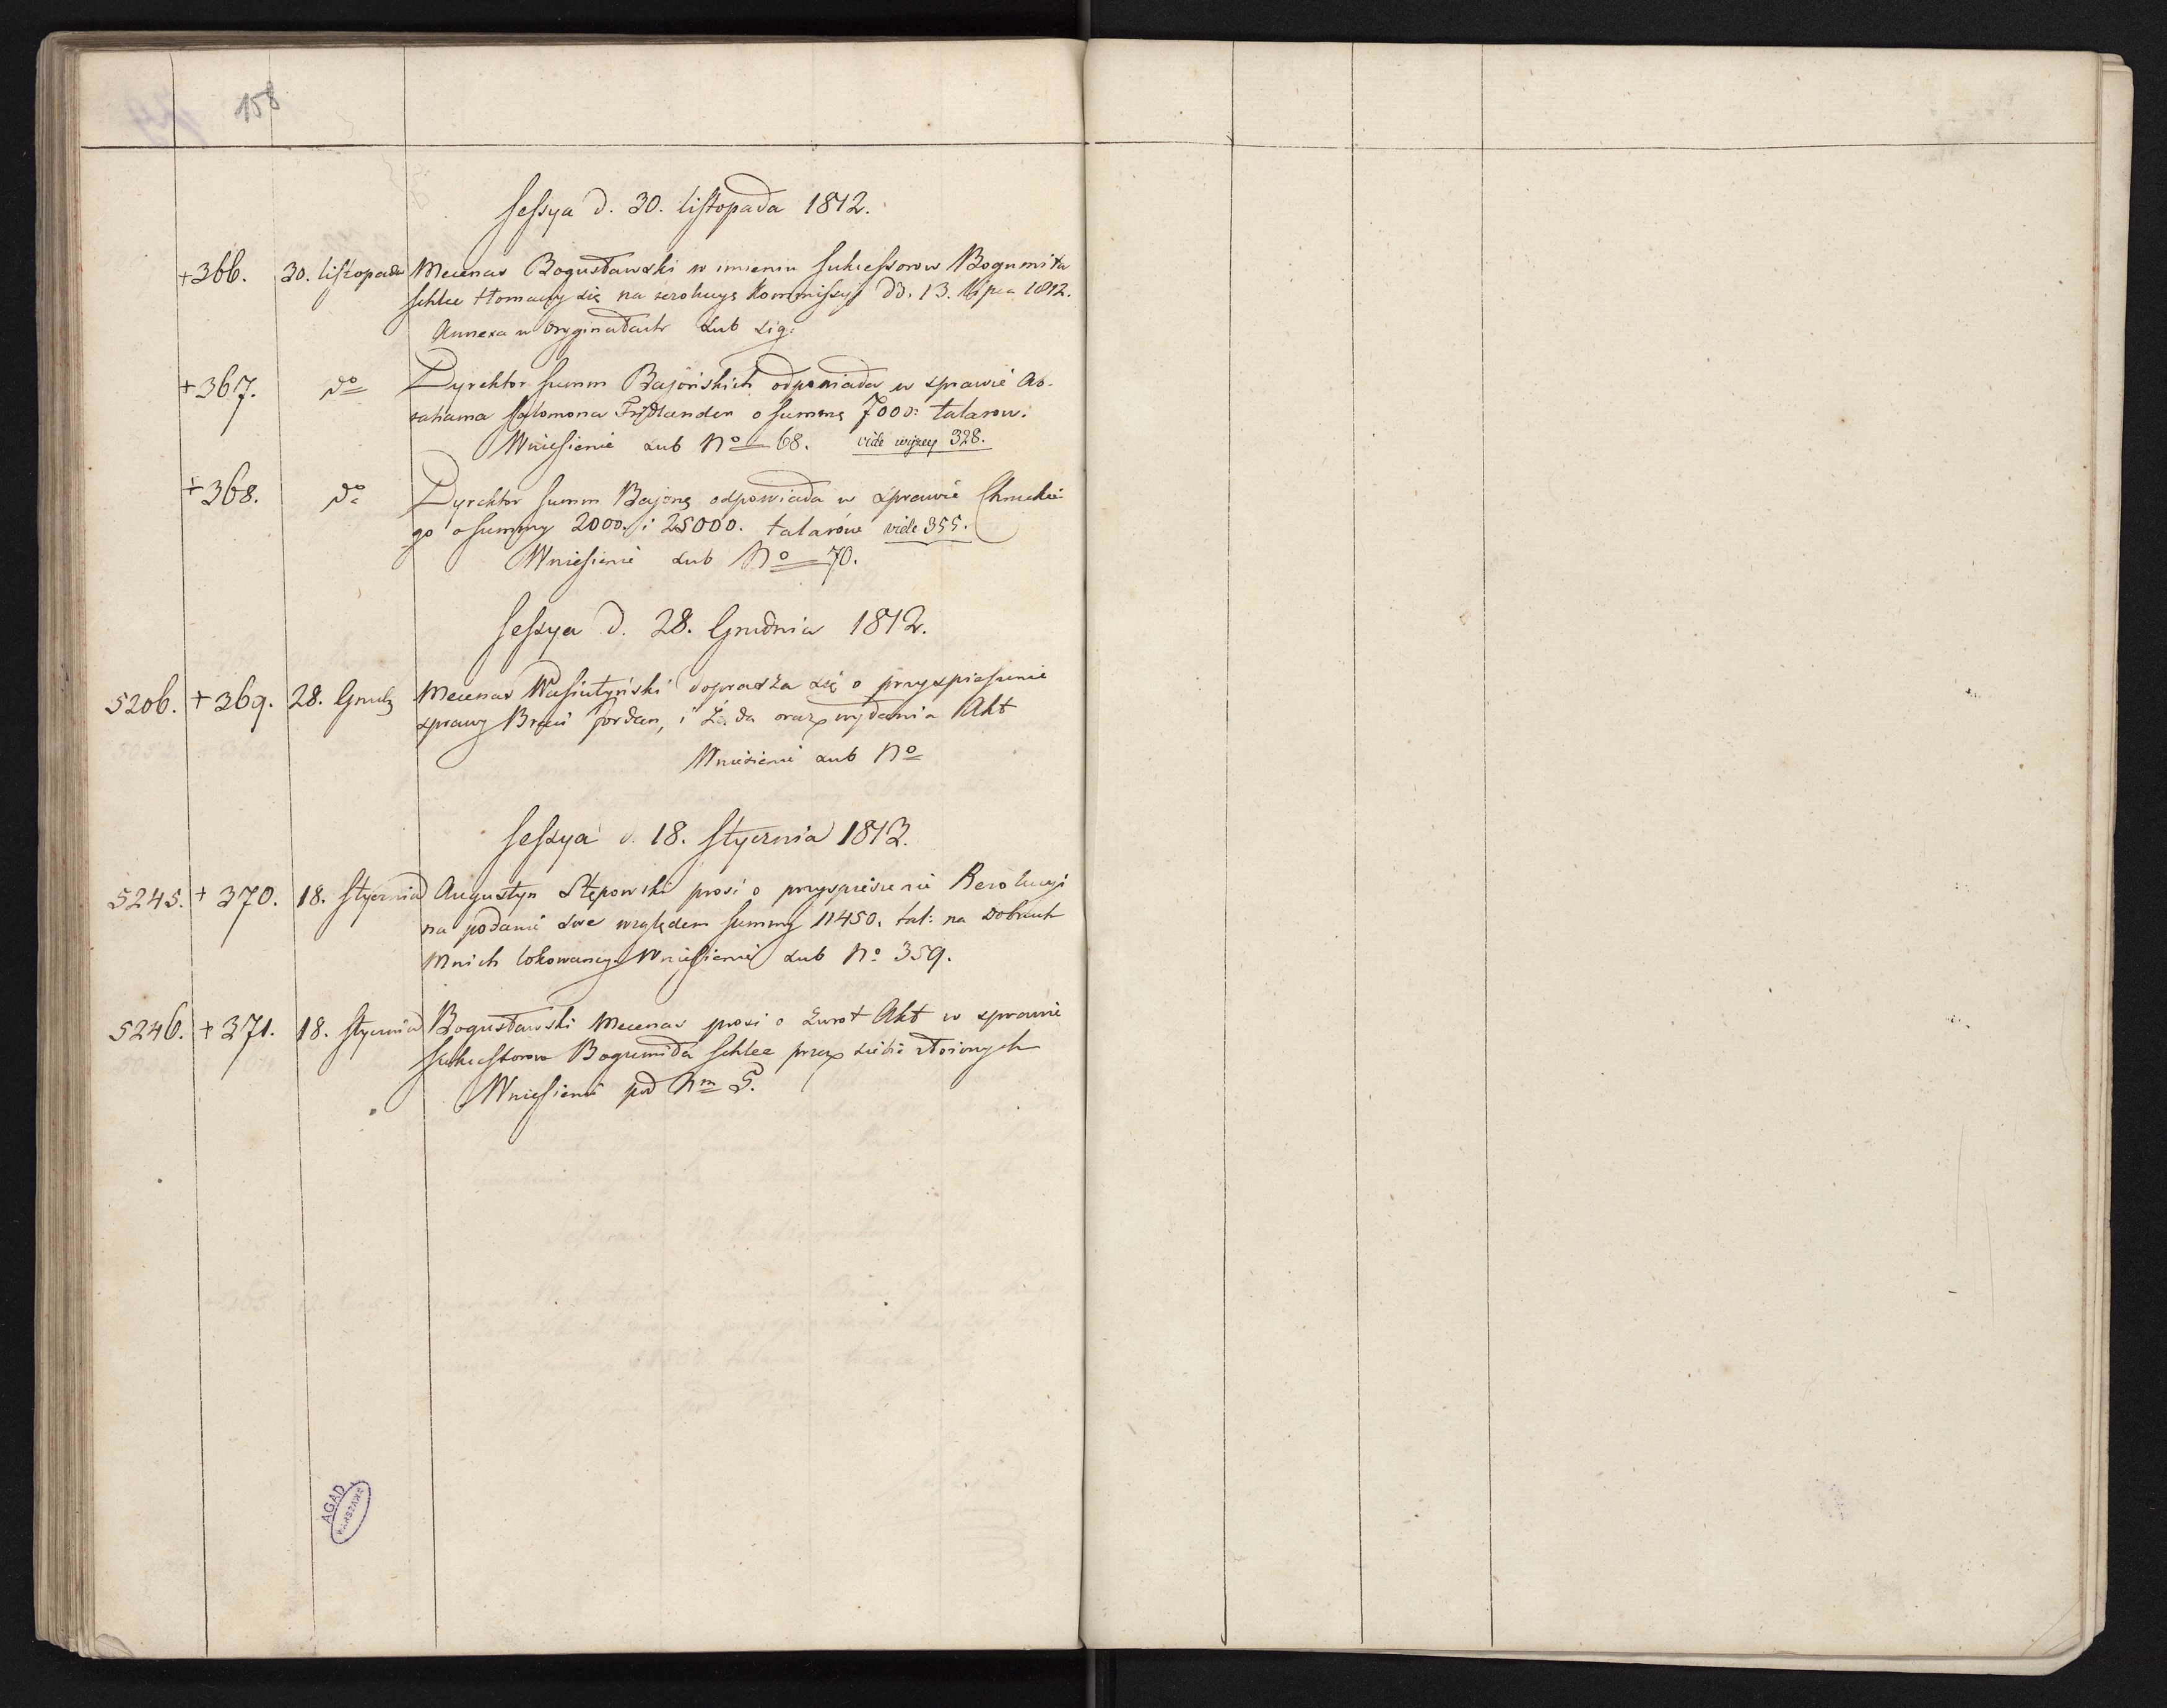 158
Sessya d. 30. listopada 1812.
+366. 30. listopada Mecenas Bogusławski w imieniu Sukcessorow Bogumiła
Schlee tłomaczy się na rezolucyę Kommissyi dd. 13. lipca 1812.
Annexa w Oryginałach sub sig:
+367. do Dyrektor Summ Bajońskich odpowiada w sprawie Ab-
rahama Salomona Frydlander o summę 7000: talarow.
Wniesienie sub No 68. vide wyzey 328.
+368. do Dyrektor Summ Bajonś odpowiada w sprawie
go o summy 2000. i 25000. talarów vide 355.
Wniesienie sub No 70.
Sessya d. 28. Grudnia 1812.
5206. +369. 28. Grud Mecenas Wasiutyński doprasza się o przyspieszenie
sprawy Braci Jordan, i żąda oraz wydania Akt
Wniesienie sub No
Sessya d. 18. Stycznia 1813.
5245. +370. 18. Stycznia Augustyn Stępowski prosi o przyspieszenie Rezolucyi
na podanie swe względem summy 11450. tal: na Dobrach
Mnich lokowaney Wniesienie sub No 359.
5246. +371. 18. Stycznia Bogusławski Mecenas prosi o zwrot Akt w sprawie
Sukcessorow Bogumiła Schlee przez siebie złożonych
Wniesienie pod Nm 5.
AGAD
WARSZAWA